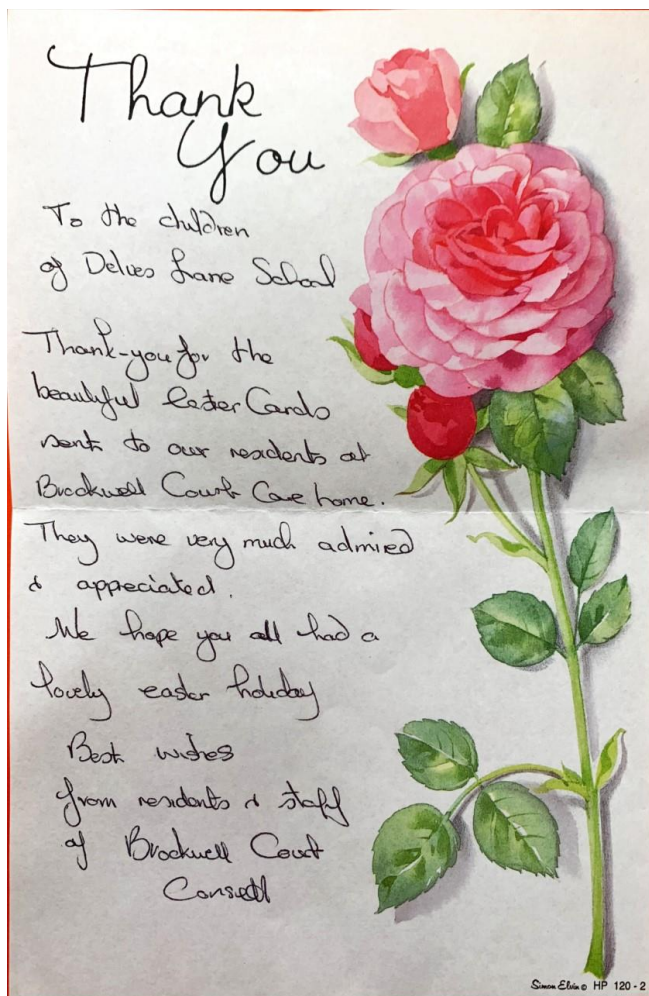 Thank
You
To the children
of Delves Lane School
Thank-you for the
beautiful Easter Cards
sent to our residents at
Brockwell Court Care home.
They were very much admired
& appreciated.
We hope you all had a
lovely easter holiday
Best wishes
from residents & staff
of Brockwell Court
Consett
Simon Elvin © HP 120-2